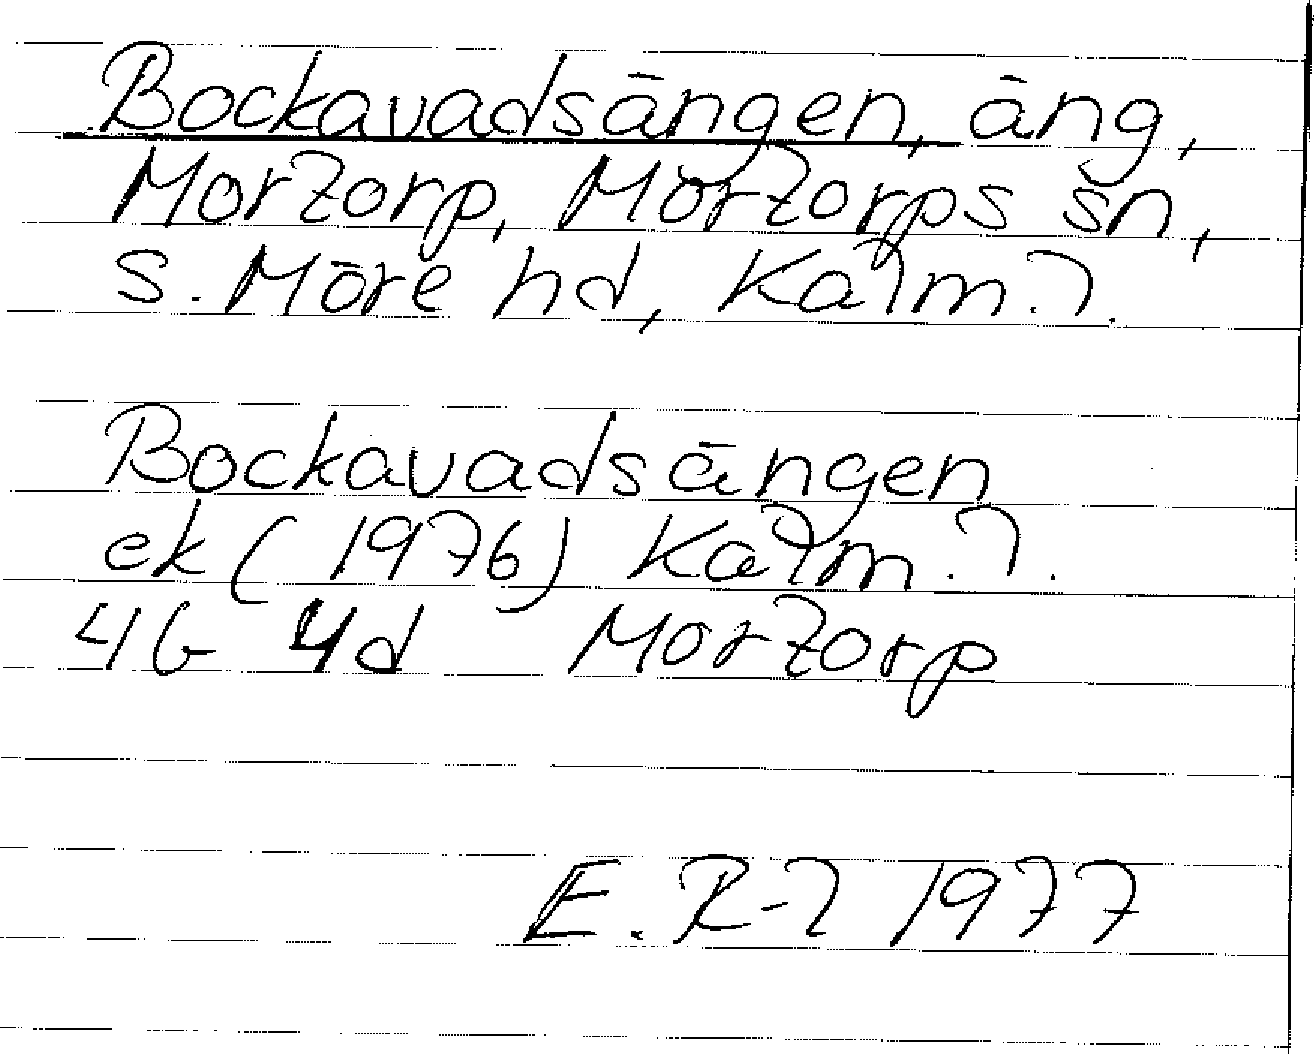 Bockavadsängen, äng,
Mortorp, Mortorps sn,
S. Möre hd, Kalm. l.
Bockavadsängen
ek (1976) Kalm. l.
4G 4d Mortorp
E. R-l 1977